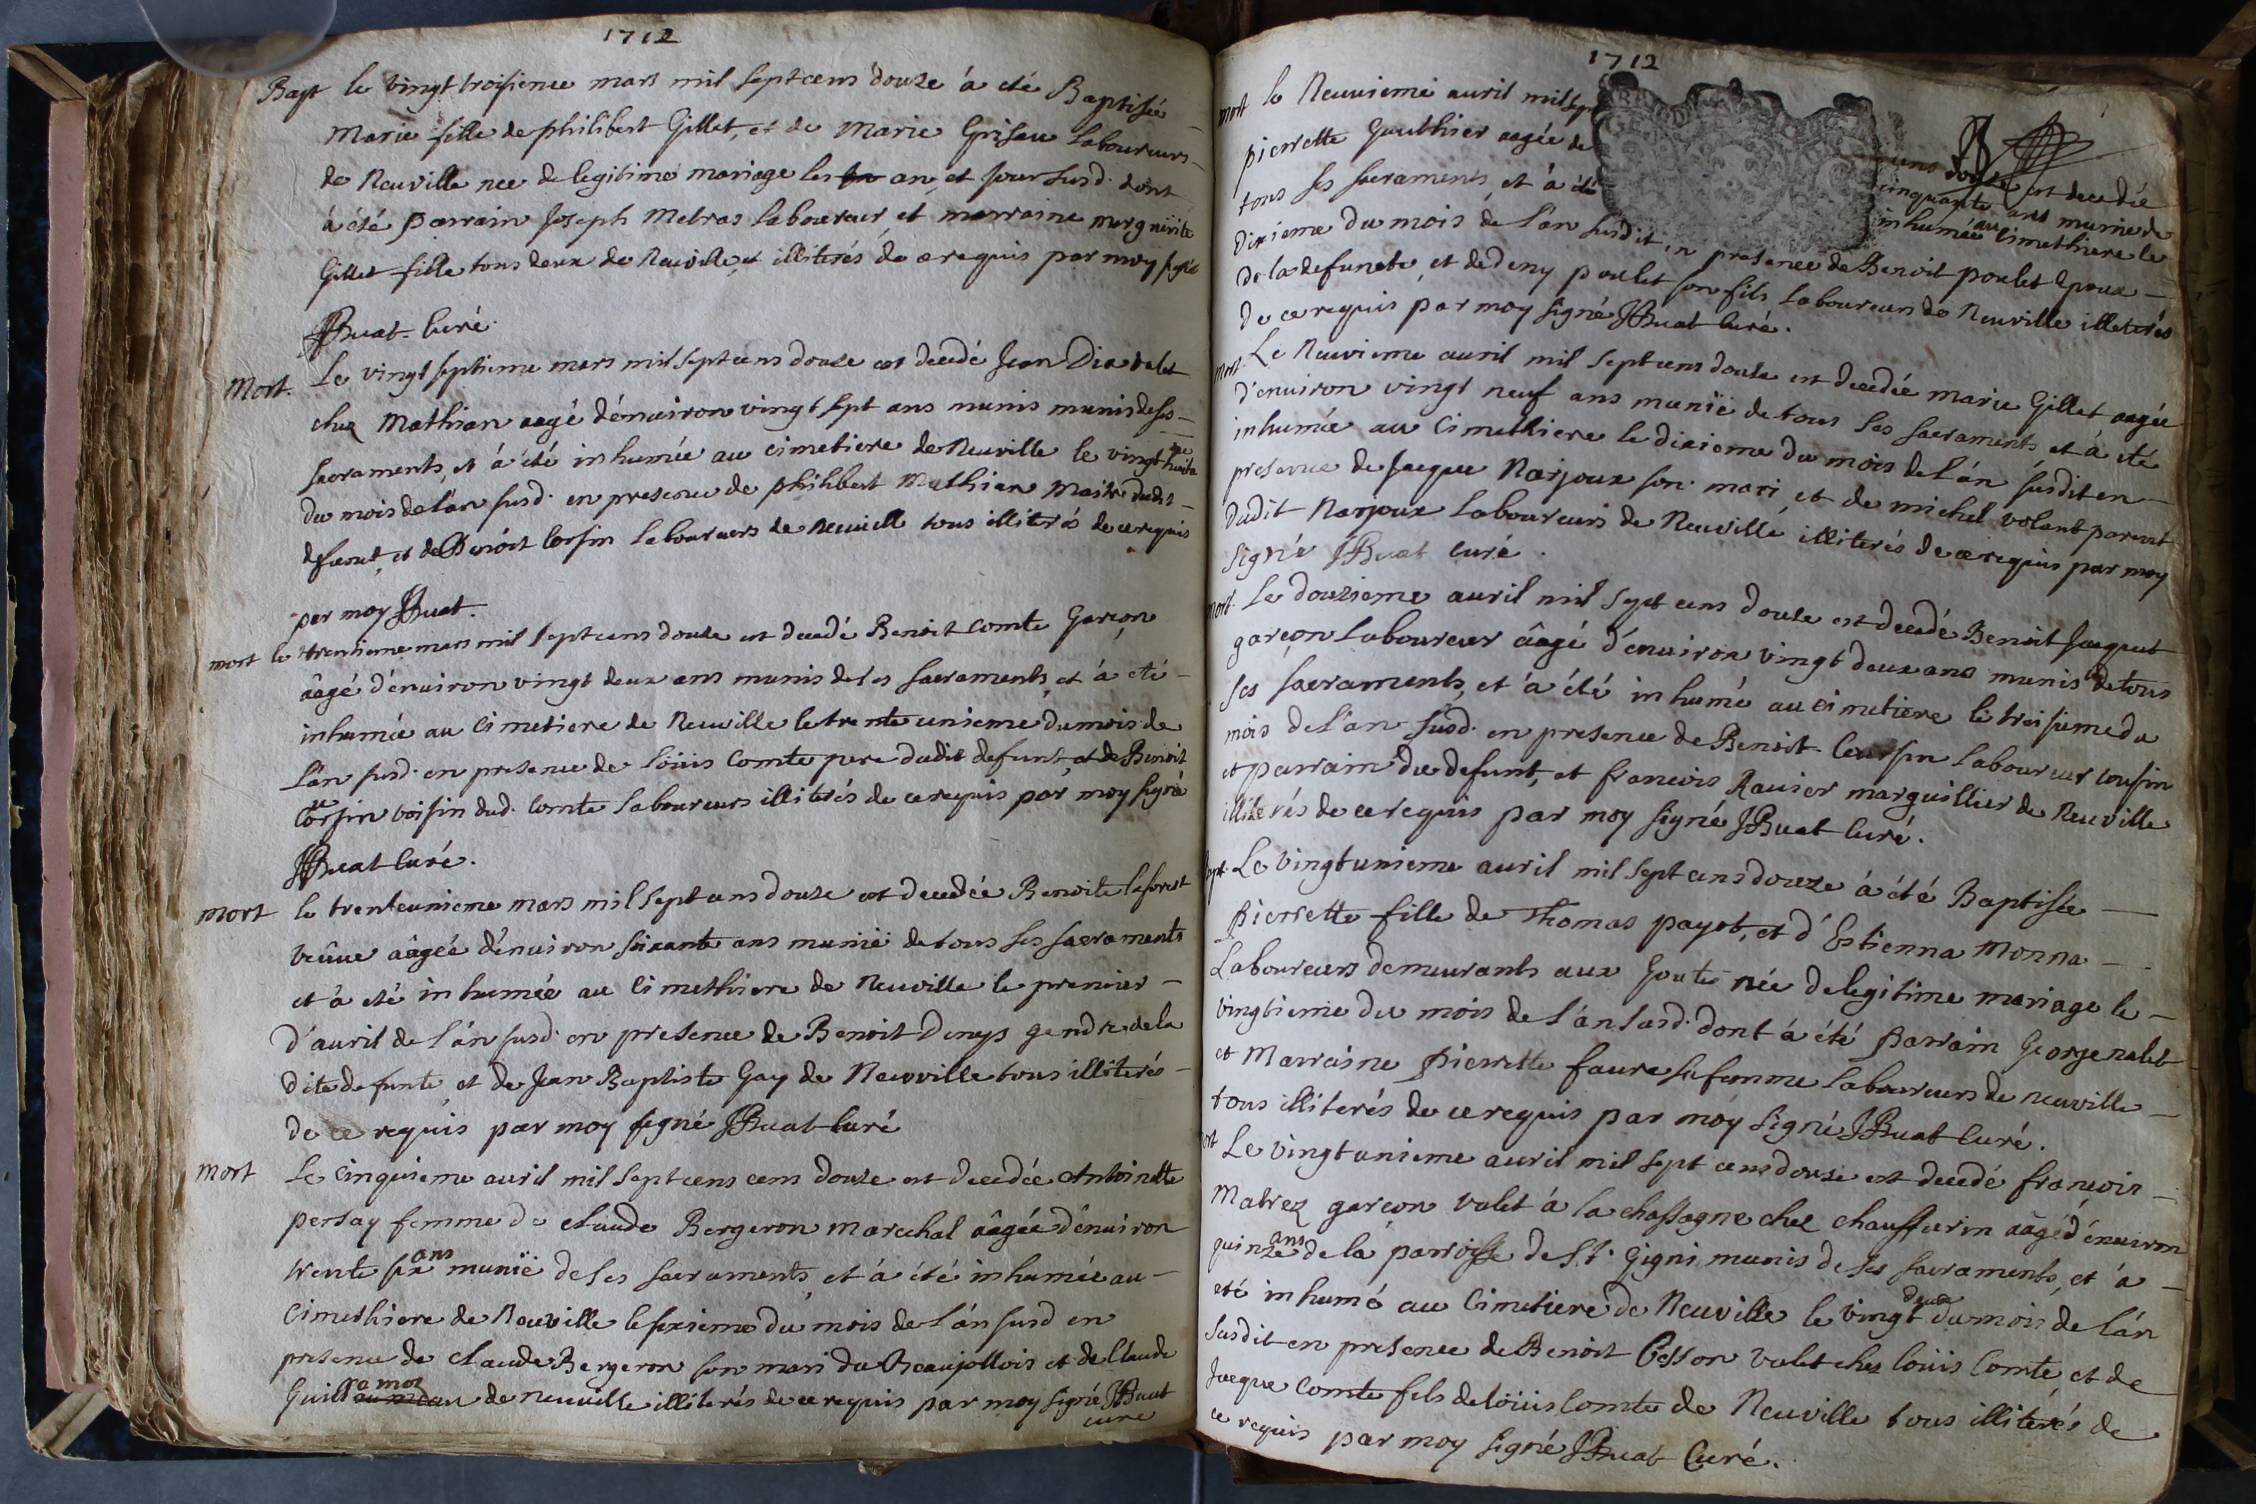 1712
Bapt le vingt troisieme mars mil sept cens douze á eté Baptisée
Marie fille de philibert Gillet, et de Marie Grisau laboureurs
de Neuville nee de legitime mariage les an, et jour susd. dont
á été parrain Joseph Melras laboureur et marraine marguërite
Gillet fille tous deux de Neuville, et illiterés de ce requis par moy signé
JBuat curé.
Mort. Le vingt septieme mars mil sept cens douze est decedé Jean Dia valet
chez Mathian aagé d'énuiron vingt sept ans munis munis de ses
sacraments, et á été inhumée au cimetiere de Neuville le vingt huit
du mois de l'án susd. en presence de philibert Mathian Maitre dudit
defunt, et de Benoit Corsin laboureurs de Neuuille tous illiterés de ce requis
par moy JBuat.
mort le trentieme mars mil sept cens douze est decedé Benoit Comte Garçon
âagé d'énuiron vingt deux ans munis de ses sacraments, et á eté
inhumée au cimetiere de Neuville le trente unieme du mois de
l'án susd. en presence de loüis Comte pere dudit defunt, et de Benoit
Corsin voisin dud. Comte laboureurs illiterés de ce requis par moy signé
JBuat curé.
mort le trente unieme mars mil sept cens douze est decedée Benoite laforest
veûue aâgée d'énuiron soixante ans munië de tous ses sacraments
et á eté inhumée au cimethiere de Neuville le premier
d'auril de l'án susd. en presence de Benoit Denys gendre de la
dite defunte, et de Jean Baptiste Gay de Neuville tous illiterés
de ce requis par moy signé JBuat curé
mort Le cinquieme auril mil sept cens cens douze est decedée Antoinette
persay femme de claude Bergeron marechal aâgée d'énuiron
trente six ans munië de ses sacraments, et á été inhumée au
cimethiere de Neuville le sixieme du mois de l'án susd en
presence de claude Bergeron son mari du Beaujollois et de Claude
Guillamot de neuuille illiterés de ce requis par moy signé JBuat
curé
1712
mort le Neuuieme auril mil sept
cens douze est decedée
pierrette Gauthier aagée de
cinquante ans munie de
tous ses sacraments, et á été
inhumée au cimethiere le
dixieme du mois de l'án susdit en presence de Benoit poulet Epoux
de la defuncte, et de Deny poulet son fils laboureurs de Neuville illeterés
de ce requis par moy signé JBuat curé.
mort. Le Neuvieme auril mil sept cens douze est decedée marie Gillet aagée
d'enuiron vingt neuf ans munië de tous ses sacraments et á eté
inhumée au Cimethiere le dixieme du mois de l'án susdit en
presence de Jacque Narjoux son mari, et de michel volant parent
dudit Narjoux laboureurs de Neuville, illiterés de ce requis par moy
signé JBuat curé.
mort. Le douzieme auril mil sept cens douze est decedé Benoit Jacquet
garçon laboureur âagé d'énuiron vingt deux ans munis de tous
ses sacraments, et á été inhumé au cimetiere le treisieme du
mois de l'an susd. en presence de Benoit Coursin laboureur cousin
et parrain du defunt, et francois Rauier marguillier de Neuville
illiterés de ce requis par moy signé JBuat curé.
Bapt. Le vingt unieme auril mil sept cens douze á été Baptisée
pierrette fille de Thomas payot, et d'Estienna Monna
Laboureurs demeurants aux Goutes née de legitime mariage le
vingtieme du mois de l'án susd. dont á été parrain George nalet
et Marraine pierrette faure sa femme laboureurs de neuville
tous illiterés de ce requis par moy signé JBuat curé.
mort Le vingt unieme auril mil sept cens douze est decedé francois
Matrez garçon valet á la chassagne chez chauffurin aagé d'énuiron
quinze ans de la parroisse de St. Gigni munis de ses sacraments, et á
eté inhumé au Cimetiere de Neuville le vingt deux du mois de l'án
susdit en presence de Benoit Cesson valet chez loüis Comte, et de
Jacque Comte fils de loüis Comte de Neuville tous illiterés de
ce requis par moy signé JBuat Curé.